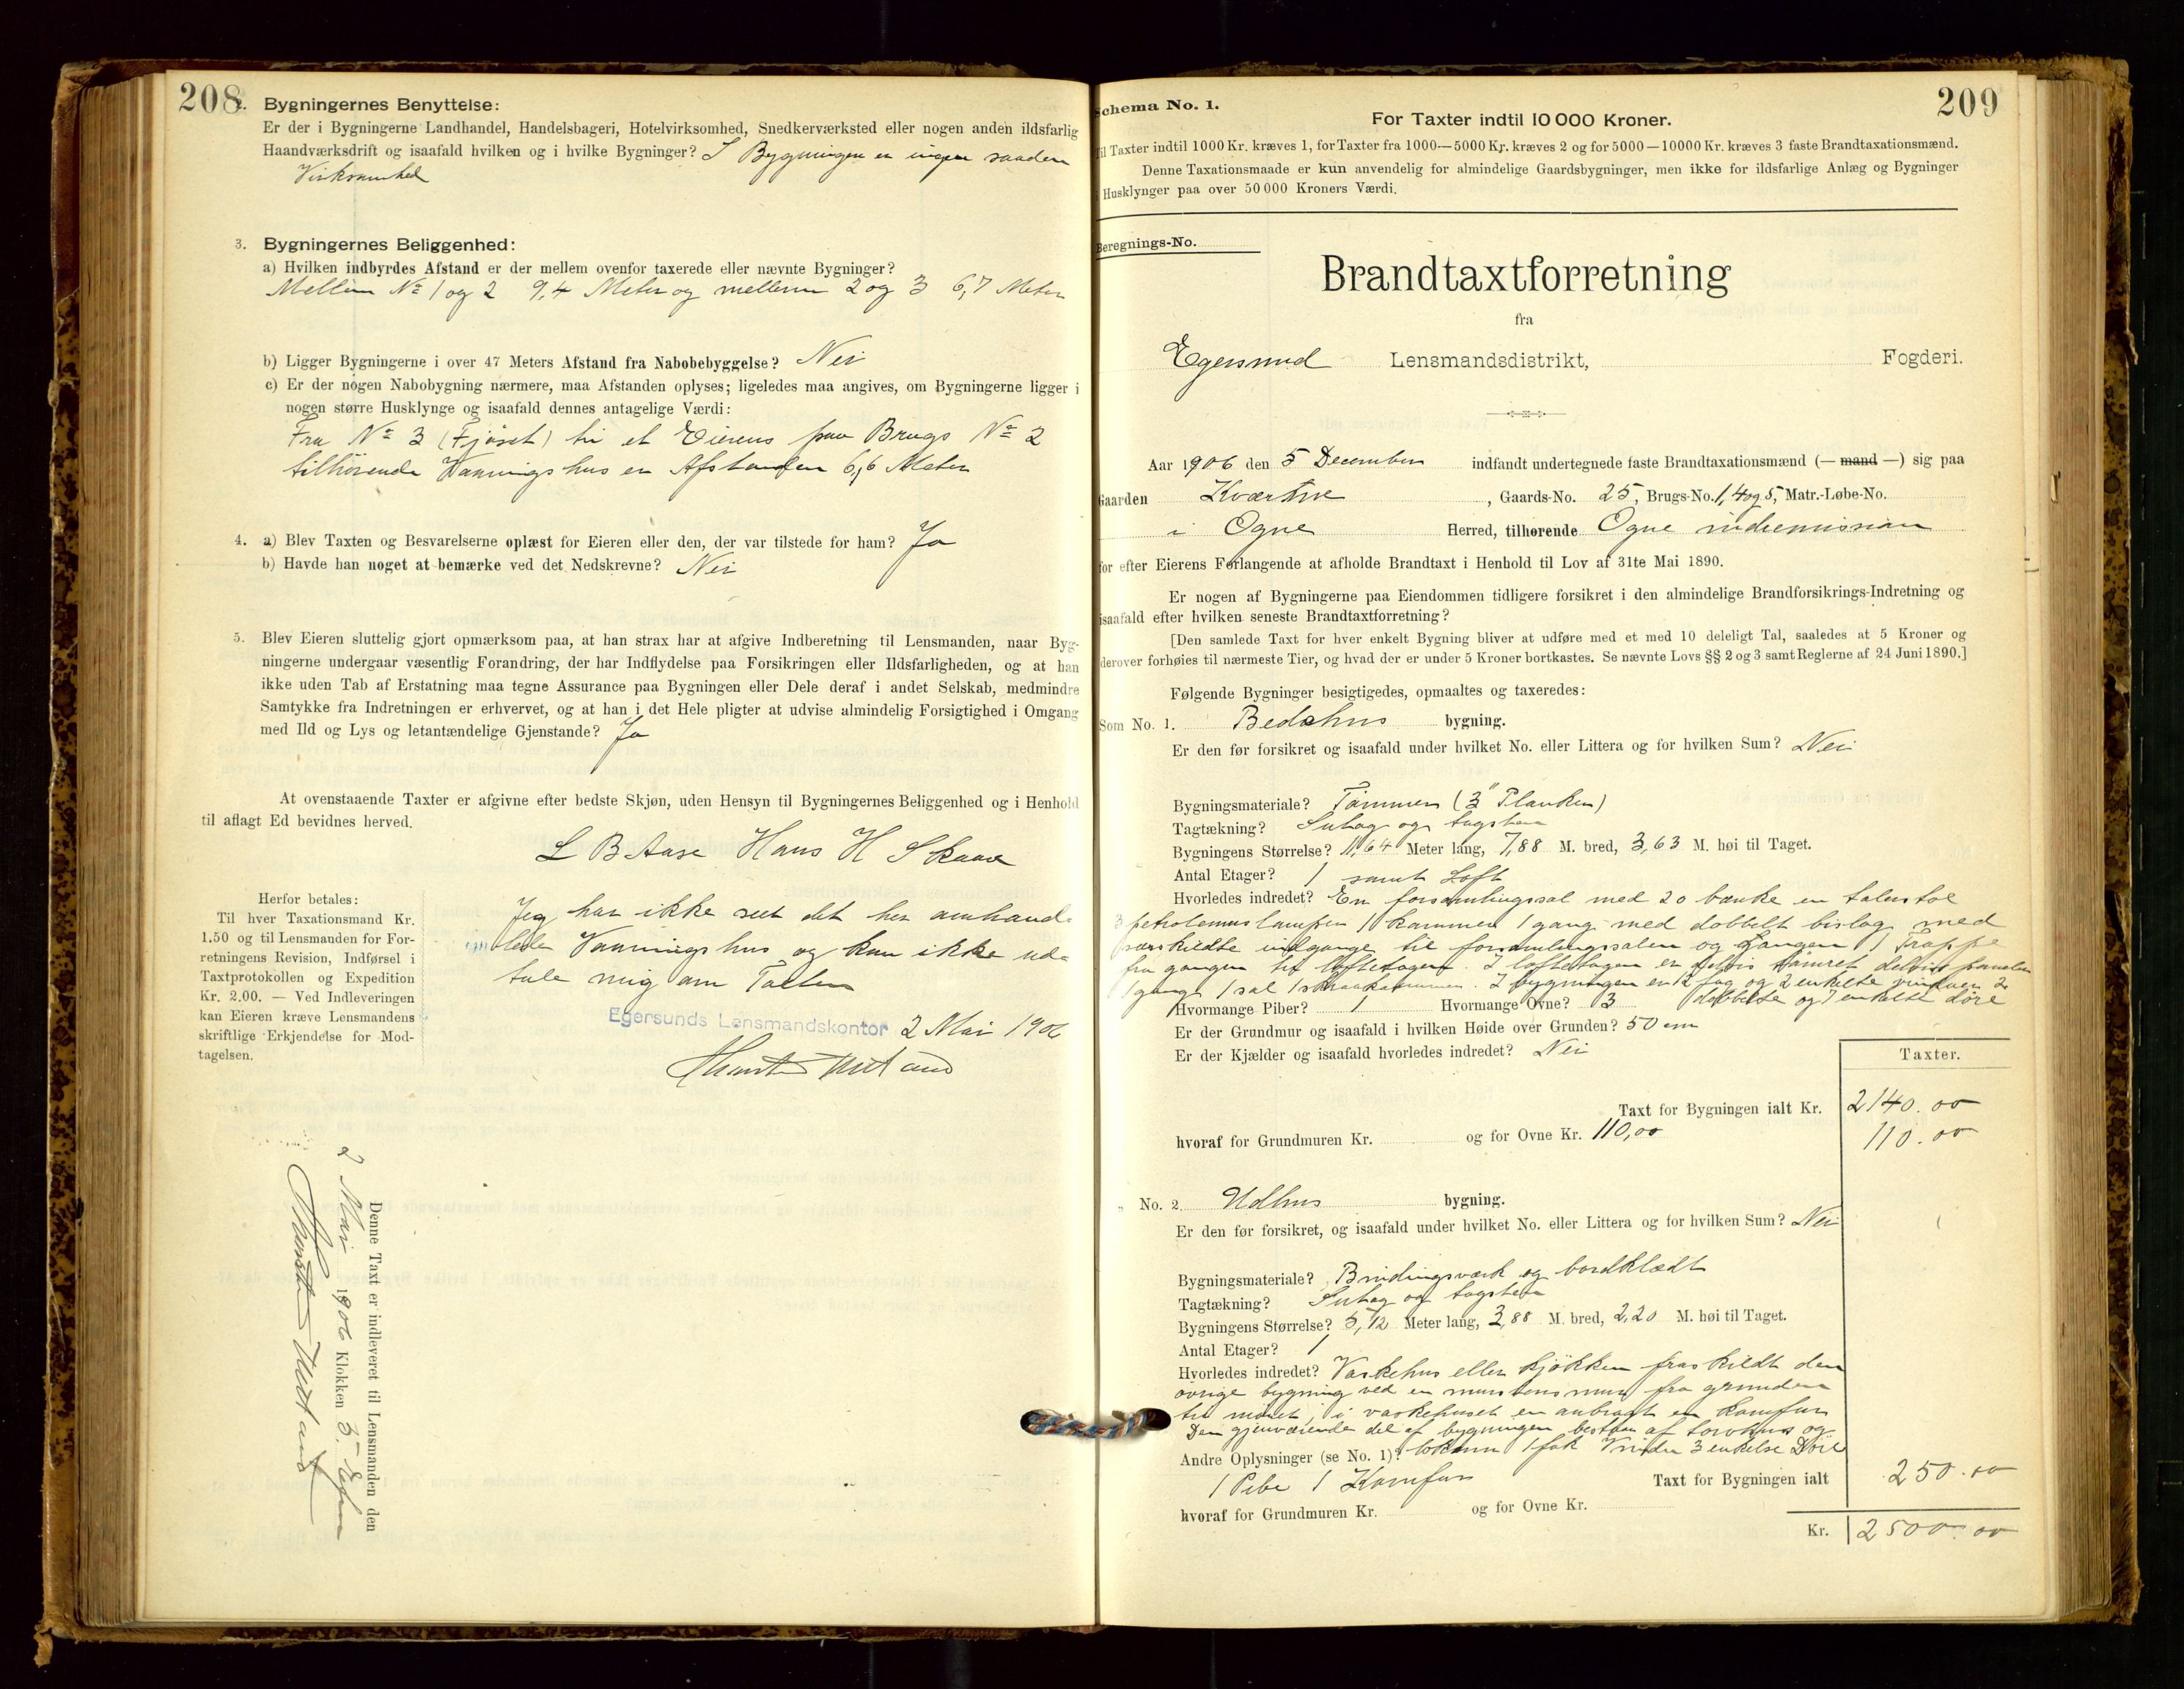 208
2. Bygningernes Benyttelse:
Er der i Bygningerne Landhandel, Handelsbageri, Hotelvirksomhed, Snedkerværksted eller nogen anden ildsfarlig
Haandværksdrift og isaafald hvilken og i hvilke Bygninger? I Bygningen er ingen saadan
Virksomhed
3. Bygningernes Beliggenhed:
a) Hvilken indbyrdes Afstand er der mellem ovenfor taxerede eller nævnte Bygninger?
Mellem No 1 og 2 9,4 Meter og mellem 2 og 3 6,7 Meter
b) Ligger Bygningerne i over 47 Meters Afstand fra Nabobebyggelse? Nei
c) Er der nogen Nabobygning nærmere, maa Afstanden oplyses; ligeledes maa angives, om Bygningerne ligger i
nogen større Husklynge og isaafald dennes antagelige Værdi:
Fra No 3 (Fjøset) til et Eierens paa Brugs No 2
tilhørende Vaaningshus er Afstanden 6,6 Meter
4. a) Blev Taxten og Besvarelserne oplæst for Eieren eller den, der var tilstede for ham? Ja
b) Havde han noget at bemærke ved det Nedskrevne? Nei
5. Blev Eieren sluttelig gjort opmærksom paa, at han strax har at afgive Indberetning til Lensmanden, naar Byg-
ningerne undergaar væsentlig Forandring, der har Indflydelse paa Forsikringen eller Ildsfarligheden, og at han
ikke uden Tab af Erstatning maa tegne Assurance paa Bygningen eller Dele deraf i andet Selskab, medmindre
Samtykke fra Indretningen er erhvervet, og at han i det Hele pligter at udvise almindelig Forsigtighed i Omgang
med Ild og Lys og letantændelige Gjenstande? Ja
At ovenstaaende Taxter er afgivne efter bedste Skjøn, uden Hensyn til Bygningernes Beliggenhed og i Henhold
til aflagt Ed bevidnes herved.
L B Aase Hans H Skaar
Herfor betales:
Til hver Taxationsmand Kr.
1.50 og til Lensmanden for For-
retningens Revision, Indførsel i
Taxtprotokollen og Expedition
Kr. 2.00. — Ved Indleveringen
kan Eieren kræve Lensmandens
skriftlige Erkjendelse for Mod-
tagelsen.
Jeg har ikke seet det her omhand-
lede Vaaningshus og kan ikke ud-
tale mig om Taxten
Egersunds Lensmandskontor 2 Mai 1906
Denne Taxt er indleveret til Lensmanden den
2 Mai 1906 Klokken 5 Efm
209
Schema No. 1.
For Taxter indtil 10 000 Kroner.
Til Taxter indtil 1000 Kr. kræves 1, for Taxter fra 1000—5000 Kr. kræves 2 og for 5000—10000 Kr. kræves 3 faste Brandtaxationsmænd.
Denne Taxationsmaade er kun anvendelig for almindelige Gaardsbygninger, men ikke for ildsfarlige Anlæg og Bygninger
i Husklynger paa over 50 000 Kroners Værdi.
Beregnings-No.
Brandtaxtforretning
fra
Egersund Lensmandsdistrikt, Fogderi.
Aar 1906 den 5 December indfandt undertegnede faste Brandtaxationsmænd (— mand —) sig paa
Gaarden , Gaards-No. 25, Brugs-No. 1, 4 og 5, Matr.-Løbe-No.
i Ogne Herred, tilhørende Ogne indremission
for efter Eierens Forlangende at afholde Brandtaxt i Henhold til Lov af 31te Mai 1890.
Er nogen af Bygningerne paa Eiendommen tidligere forsikret i den almindelige Brandforsikrings-Indretning og
isaafald efter hvilken seneste Brandtaxtforretning?
[Den samlede Taxt for hver enkelt Bygning bliver at udføre med et med 10 deleligt Tal, saaledes at 5 Kroner og
derover forhøies til nærmeste Tier, og hvad der er under 5 Kroner bortkastes. Se nævnte Lovs §§ 2 og 3 samt Reglerne af 24 Juni 1890.]
Følgende Bygninger besigtigedes, opmaaltes og taxeredes:
Som No. 1. Bedehus bygning.
Er den før forsikret og isaafald under hvilket No. eller Littera og for hvilken Sum? Nei
Bygningsmateriale? Tømmer (3" Planker)
Tagtækning? Sutag og tagsten
Bygningens Størrelse? 11,64 Meter lang, 7,88 M. bred, 3,63 M. høi til Taget.
Antal Etager? 1 samt Loft
Hvorledes indredet? En forsamlingssal med 20 bænke en talerstol
3 petroleumslamper 1 kammer 1 gang med dobbelt bislag med
særskildte indgange til forsamlingssalen og Gangen 1 Trappe
fra gangen til loftetagen. I loftetagen er delvis tømret delvis panelen
1 gang 1 sal 1 kammer. I bygningen er 12 fag og 2 enkelte vinduer 2
Hvormange Piber? 1 Hvormange Ovne? 3 dobbelte og 7 enkelte Døre
Er der Grundmur og isaafald i hvilken Høide over Grunden? 50 cm
Er der Kjælder og isaafald hvorledes indredet? Nei
Taxter.
Taxt for Bygningen ialt Kr. 2140.00
hvoraf for Grundmuren Kr. og for Ovne Kr. 110,00 110.00
" No. 2. Udhus bygning.
Er den før forsikret, og isaafald under hvilket No. eller Littera og for hvilken Sum? Nei
Bygningsmateriale? Bindingsværk og bordklædt
Tagtækning? Sutag og tagsten
Bygningens Størrelse? 5,12 Meter lang, 3,88 M. bred, 2,20 M. høi til Taget.
Antal Etager? 1
Hvorledes indredet? Vaskehus eller Kjøkken fraskildt den
øvrige bygning ved en murstens mur fra grunden
til mønet, i vaskehuset er anbragt en Komfur
Den gjenværende del af bygningen bestaar af torvhus og
Andre Oplysninger (se No. 1)? lokum 1 fak Vindu 3 enkelse Døre
1 Pibe 1 Komfur Taxt for Bygningen ialt 250.00
hvoraf for Grundmuren Kr. og for Ovne Kr.
Kr. 2500.00